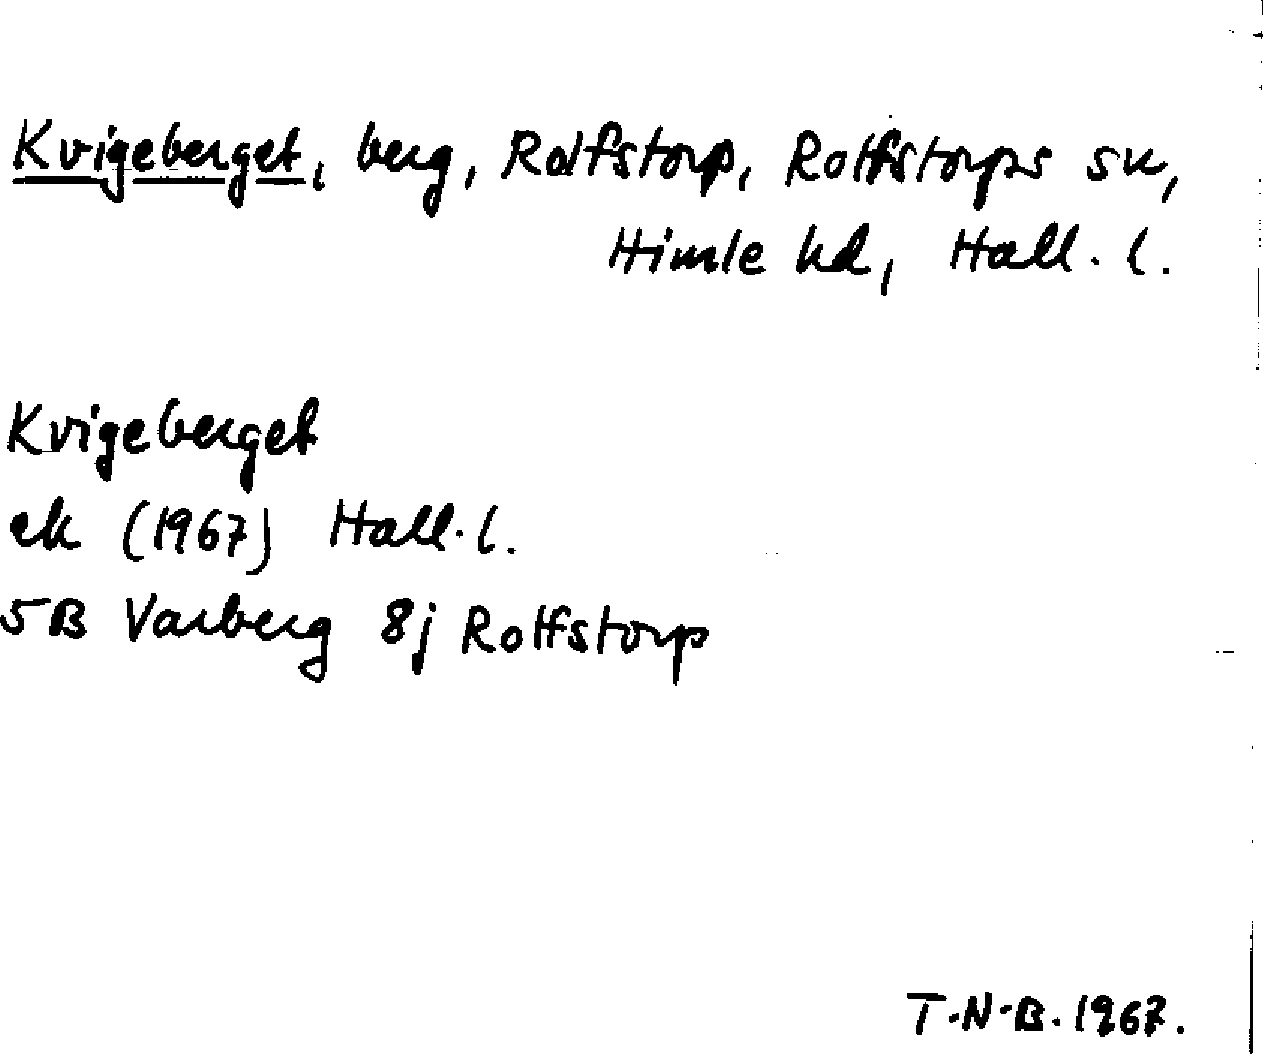 Kvigeberget, berg, Rolfstorp, Rolfstorps sn,
Himle hd, Hall. l.
Kvigeberget
ek (1967) Hall. l.
5B Varberg 8j Rolfstorp
T.N.B. 1967.